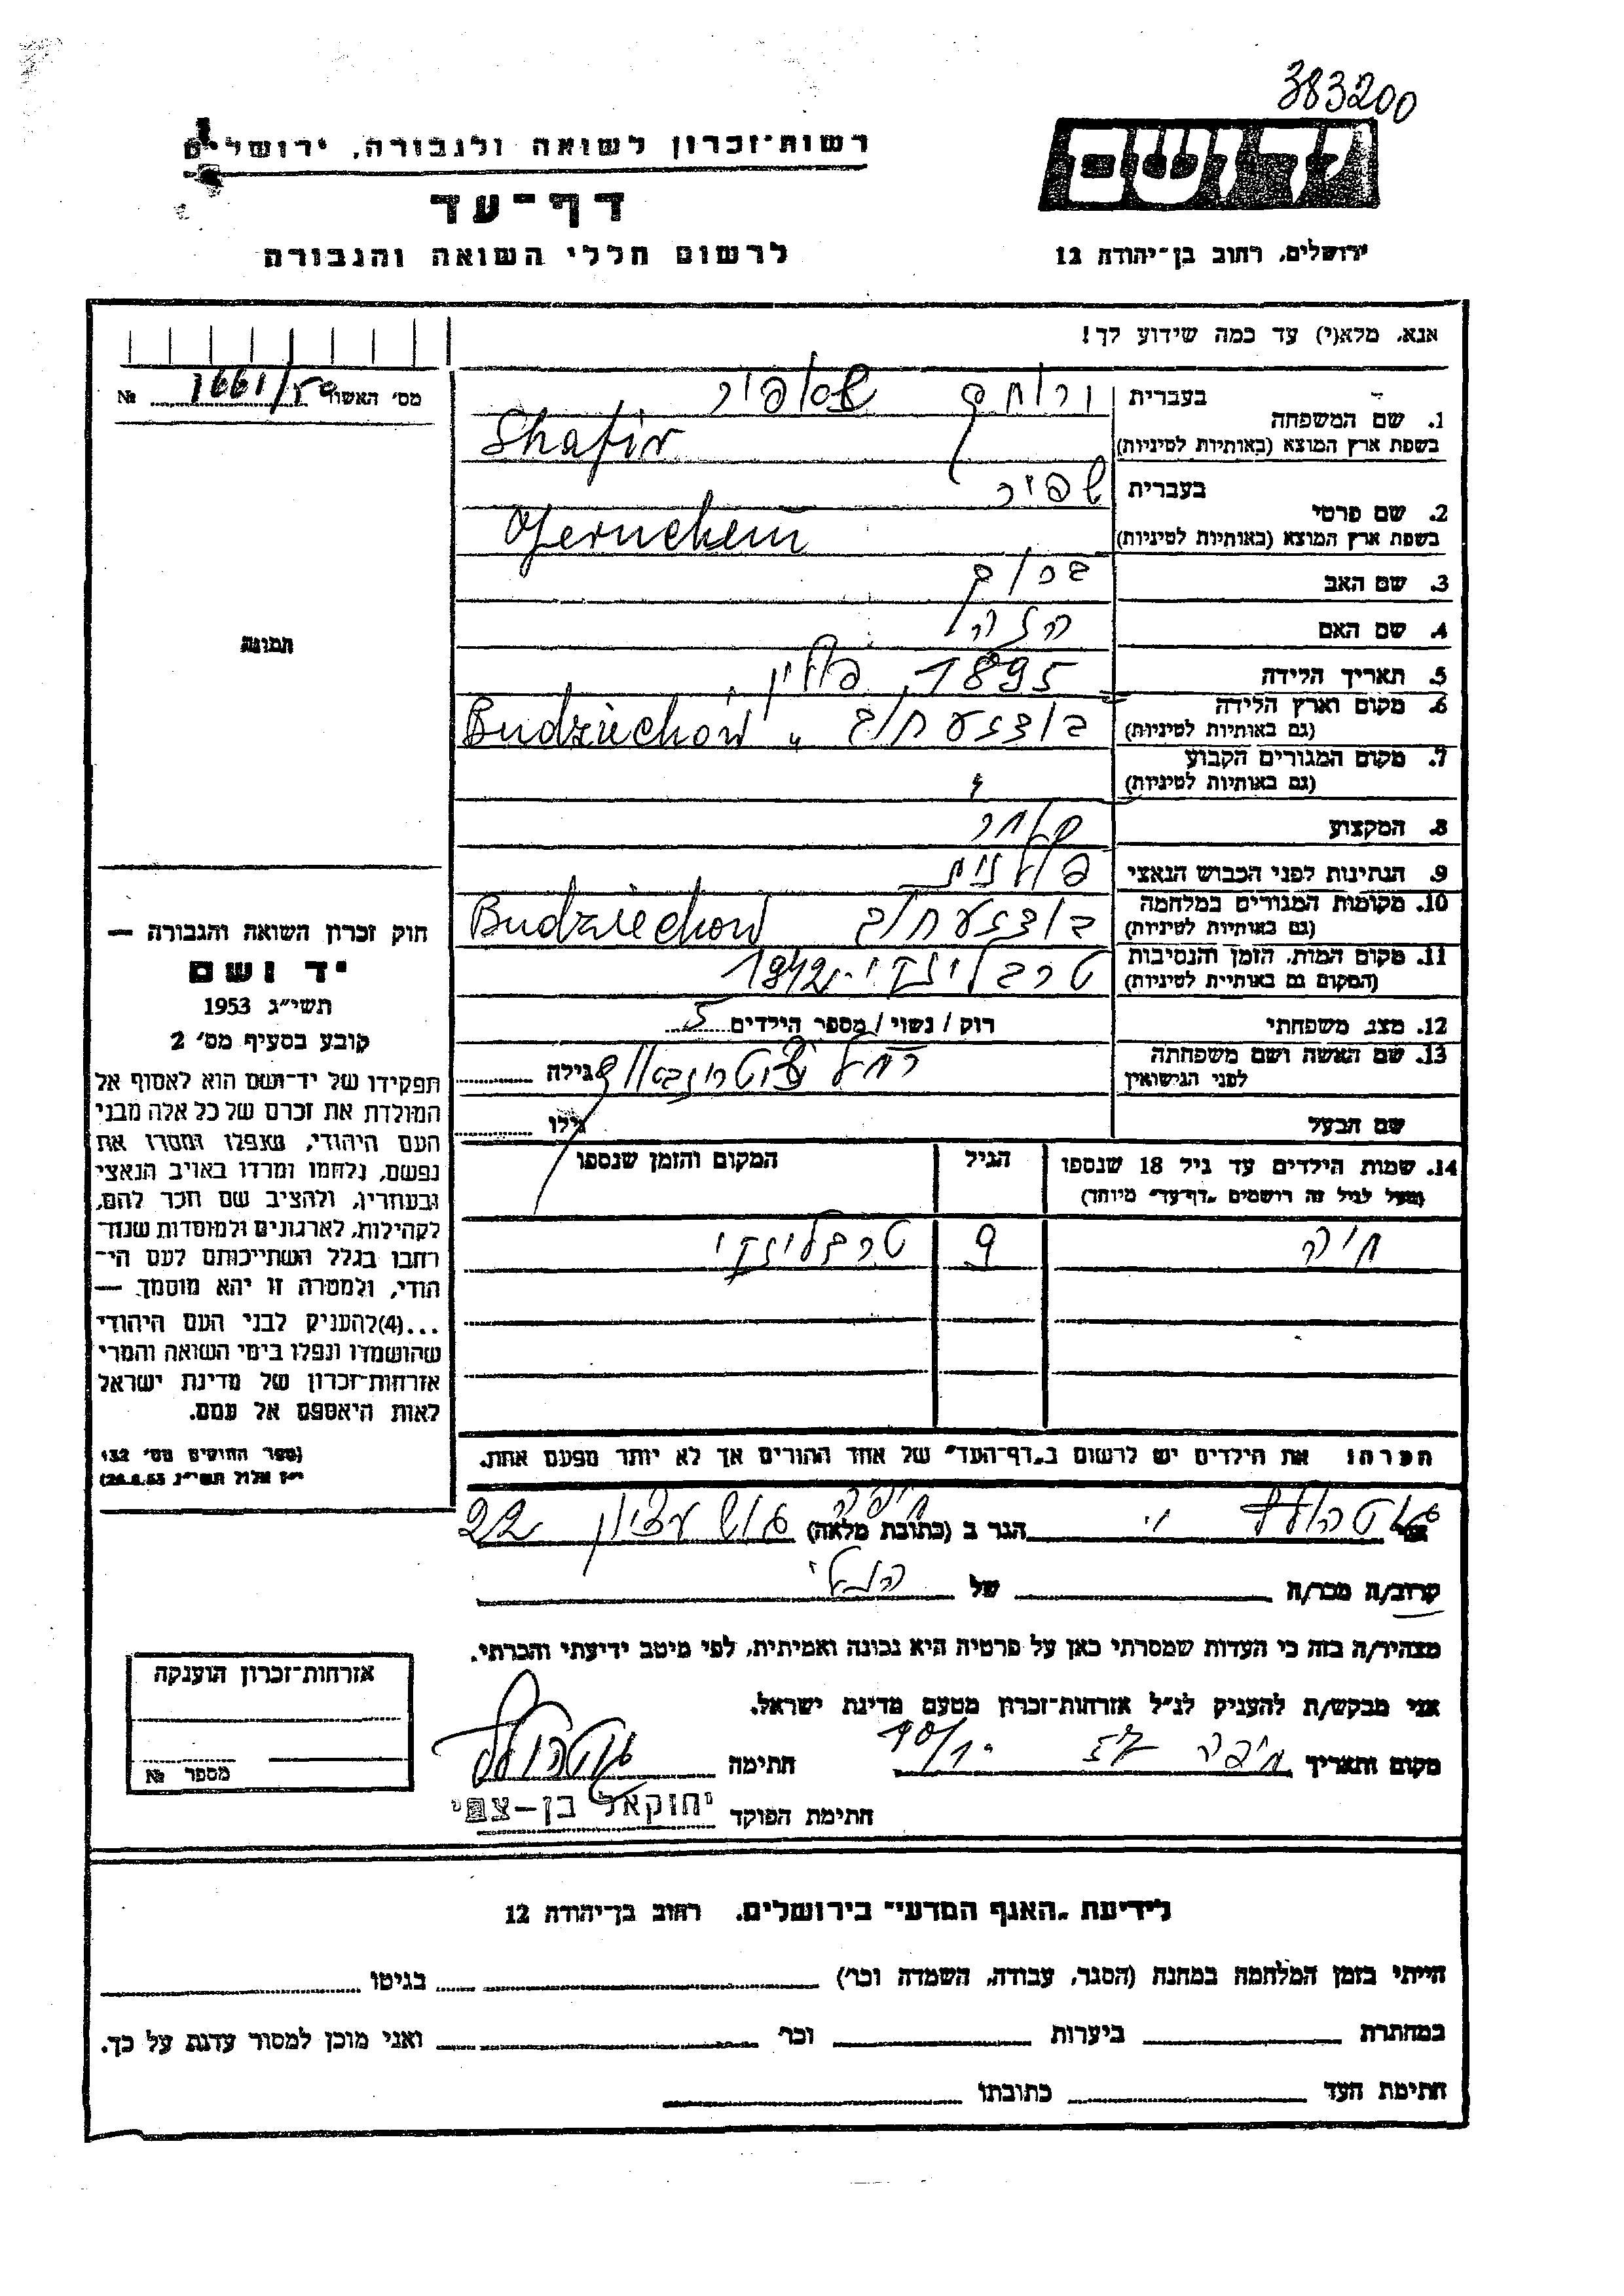 383200
רשות־זכרון לשואה ולגבורה, ירושלים
יד ושם
דף־עד
לרשום חללי השואה והגבורה
ירושלים, רחוב בן־יהודה 12
אנא, מלא(י) עד כמה שידוע לך!
מס' האשור №
בעברית שפיר
1. שם המשפחה
בשפת ארץ המוצא (באותיות לטיניות) Shafir
בעברית שפיר
2. שם פרטי
בשפת ארץ המוצא (באותיות לטיניות)
3. שם האב ברוך
4. שם האם
5. תאריך הלידה 1895, פולין
6. מקום וארץ הלידה
(גם באותיות לטיניות) Budziechow
7. מקום המגורים הקבוע
(גם באותיות לטיניות) "
8. המקצוע סוחר
9. הנתינות לפני הכבוש הנאצי פולנית
10. מקומות המגורים במלחמה
(גם באותיות לטיניות) Budziechow
11. מקום המות, הזמן והנסיבות
(המקום גם באותיות לטיניות) טרבלינקי 1942
12. מצב משפחתי רוק / נשוי / מספר הילדים 5
13. שם האשה ושם משפחתה
לפני הנישואין רחל גילה
שם הבעל גילו
14. שמות הילדים עד גיל 18 שנספו הגיל המקום והזמן שנספו
(מעל לגיל זה רושמים "דף־עד" מיוחד)
חיה 9 טרבלינקי
הערה: את הילדים יש לרשום ב"דף־העד" של אחד ההורים אך לא יותר מפעם אחת.
תמונה
חוק זכרון השואה והגבורה —
יד ושם
תשי"ג 1953
קובע בסעיף מס' 2
תפקידו של יד־ושם הוא לאסוף אל
המולדת את זכרם של כל אלה מבני
העם היהודי, שנפלו ומסרו את
נפשם, נלחמו ומרדו באויב הנאצי
ובעוזריו, ולהציב שם וזכר להם,
לקהילות, לארגונים ולמוסדות שנח־
רבו בגלל השתייכותם לעם הי־
הודי, ולמטרה זו יהא מוסמך —
...(4)להעניק לבני העם היהודי
שהושמדו ונפלו בימי השואה והמרי
אזרחות־זכרון של מדינת ישראל
לאות היאספם אל עמם.
(ספר החוקים מס' 132
י"ז אלול תשי"ג 28.8.53)
אני הגר ב (כתובת מלאה) חיפה גוש עציון 22
קרוב/ה מכר/ה של
מצהיר/ה בזה כי העדות שמסרתי כאן על פרטיה היא נכונה ואמיתית, לפי מיטב ידיעתי והכרתי.
אני מבקש/ת להעניק לנ"ל אזרחות־זכרון מטעם מדינת ישראל.
מקום ותאריך חיפה חתימה
חתימת הפוקד יחזקאל בן-צבי
אזרחות־זכרון הוענקה
מספר №
לידיעת "האגף המדעי" בירושלים, רחוב בן־יהודה 12
הייתי בזמן המלחמה במחנה (הסגר, עבודה, השמדה וכו') בגיטו
במחתרת ביערות וכו' ואני מוכן למסור עדות על כך.
חתימת העד כתובתו